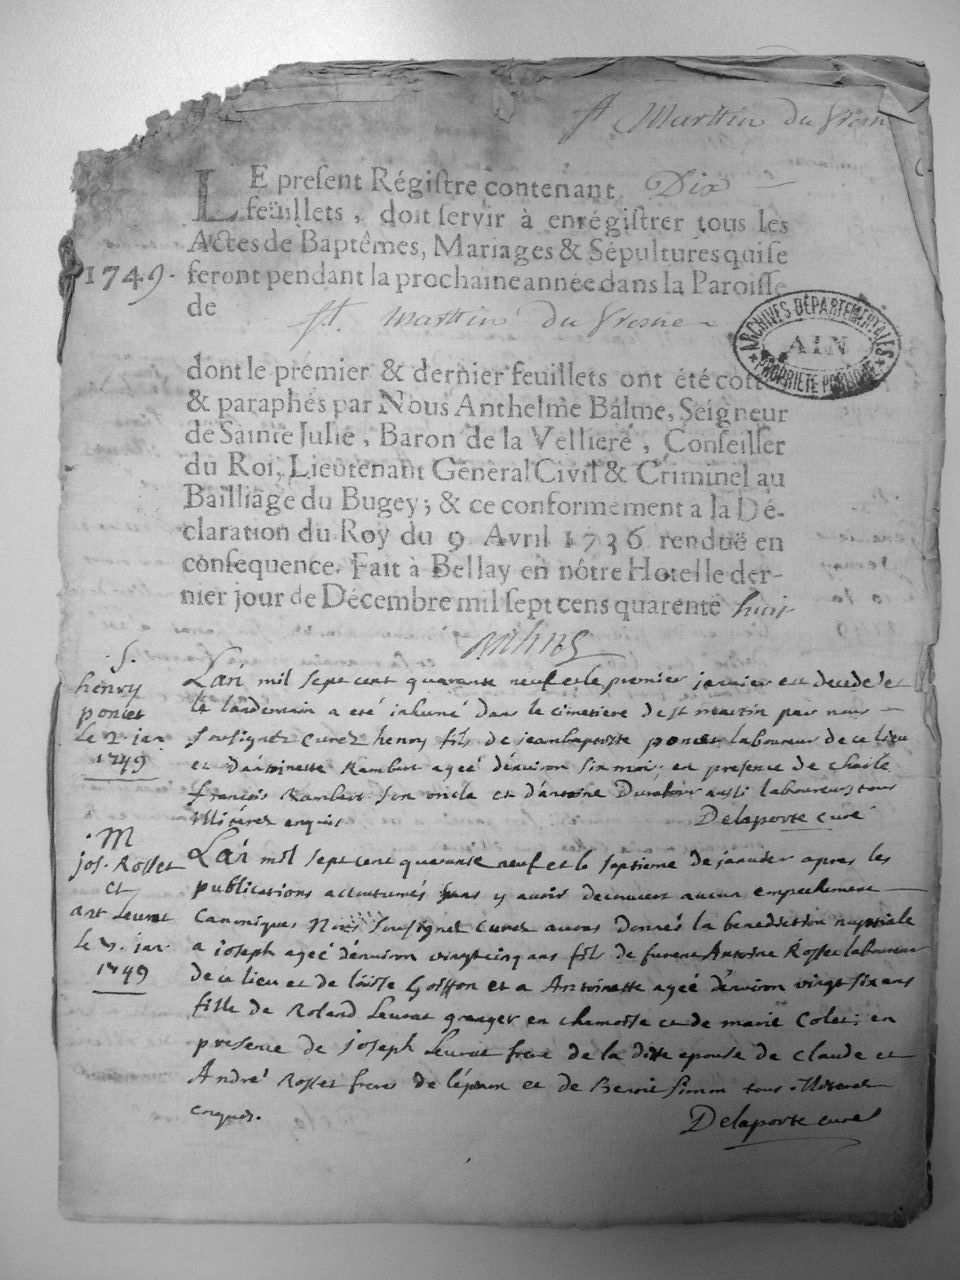 st Marttin du fresne
LE present Régistre contenant Dix
feüillets, doit servir à enrégistrer tous les
Actes de Baptêmes, Mariages & Sépultures qui se
1749. feront pendant la prochaine année dans la Paroisse
de st. marttin du fresne
ARCHIVES DÉPARTEMENTALES
AIN
PROPRIÉTÉ PUBLIQUE
dont le prémier & dernier feuillets ont été cott
& paraphés par Nous Anthelme Balme, Seigneur
de Sainte Julie, Baron de la Velliere, Conseiller
du Roi, Lieutenant Géneral Civil & Criminel au
Bailliage du Bugey; & ce conformement a la Dé-
claration du Roy du 9 Avril 1736 renduë en
consequence. Fait à Bellay en nôtre Hotel le der-
nier jour de Décembre mil sept cens quarente huit
.S.
henry
poncet
le 2 jan
1749
Lan mil sept cent quarante neuf et le premier janvier est decedé et
le landemain a eté inhumé dans le cimetiere de st martin par nous
soussignez curez henry fils de jean baptiste poncet laboureur de ce lieu
et d'antoinette Rambert ageé d'environ six mois, en presence de charle
françois Rambert son oncle et d'antoine aussi laboureurs tous
illiterez enquis
Delaporte curé
.M
jos. Rosset
et
ant Leurat
le 7. jan.
1749
Lan mil sept cent quarante neuf et le septieme de janvier apres les
publications accutumés sans y avoir decouvert aucun empechement
canoniques Nous soussignez curez avons donnés la benediction nuptiale
a joseph ageé d'environ vingt cinq ans fils de furent Antoine Rosset laboureur
de ce lieu et de loüise Goiffon et a Antoinette ageé d'environ vingt six ans
fille de Roland Leurat granger en chamoise et de marie Colet; en
presence de joseph Leurat frere de la ditte epouse de claude et
André Rosset freres de l'epoux et de Benoit simon tous illiterez
enquis.
Delaporte curé